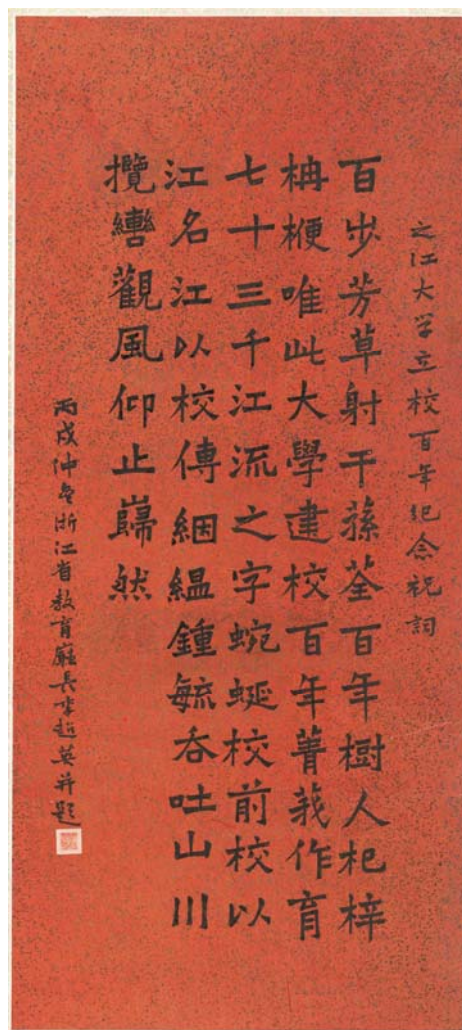 之江大学立校百年纪念祝詞
百步芳草射干蓀荃百年樹人杞梓
枏楩唯此大學建校百年菁莪作育
七十三千江流之字蜿蜒校前校以
江名江以校傳絪縕鍾毓吞吐山川
攬轡觀風仰止巋然
丙戌仲冬浙江省教育廳長李超英并題